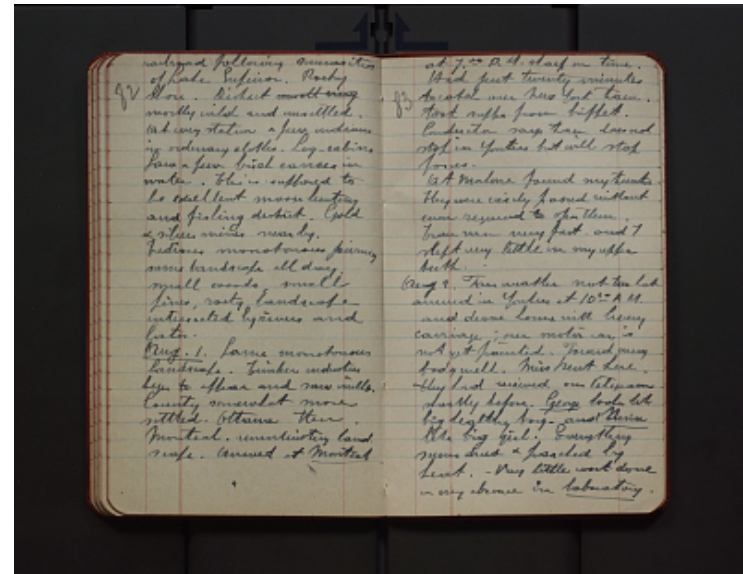 82
railroad following sinuosities
of Lake Superior. Rocky
Shore. District
mostly wild and unsettled.
At every station a few indians
in ordinary clothes. Log-cabins
Saw a few birch canoes in
water. This is supposed to
be excellent moose hunting
and fishing district. Gold
& silver mines near by.
Tedious monotonous journey
same landscape all day,
small woods, small
pines, rocky landscape
intersected by rivers and
lakes.
Aug. 1. Same monotonous
landscape. Timber industries
begin to appear and saw mills.
Country somewhat more
settled. Ottawa then
Montreal. uninteresting land
scape. Arrived at Montreal
83
at 7.00 P.M. sharp on time.
Had just twenty minutes
to catch our New York train.
took supper from buffet.
Conductor says train does not
stop in Yonkers but will stop
for us.
At Malone found my trunks.
They were easily passed without
even required to open them.
Train ran very fast and I
slept very little in my upper
berth.
Aug 2 Fine weather not too hot
arrived in Yonkers at 10 A.M.
and drove home with livery
carriage; our motor car is
not yet painted. Found my
boy well. Miss Kent here.
They had received our telegram
shortly before. George looks like
big healthy boy and
like big girl. Everything
seems dried & parched by
heat. - Very little work done
in my absence in laboratory.